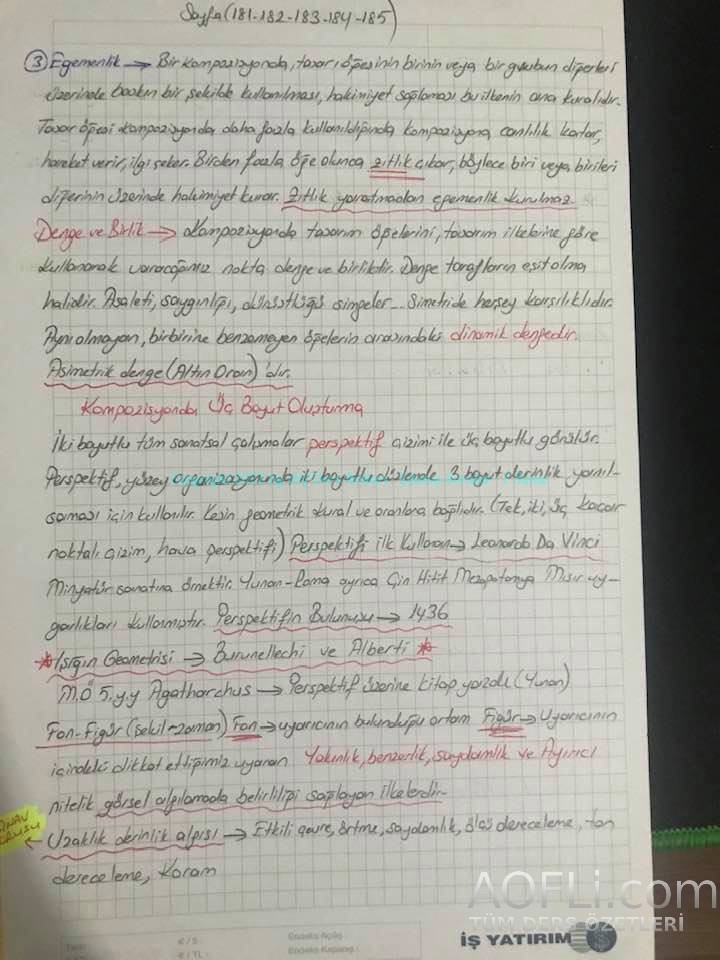 Sayfa (181-182-183-184-185)
③ Egemenlik → Bir kompozisyonda, tasarı öğesinin birinin veya bir grubun diğerleri
üzerinde baskın bir şekilde kullanılması, hakimiyet sağlaması bu ilkenin ana kuralıdır.
Tasar öğesi kompozisyonda daha fazla kullanıldığında kompozisyona canlılık katar,
hareket verir, ilgi çeker. Birden fazla öğe olunca zıtlık çıkar, böylece biri veya birileri
diğerinin üzerinde hakimiyet kurar. Zıtlık yaratmadan egemenlik kurulmaz
Denge ve Birlik → Kompozisyonda tasarım öğelerini, tasarım ilkelerine göre
kullanarak varacağımız nokta denge ve birliktir. Denge tarafların eşit olma
halidir. Asaleti, saygınlığı, dürüstlüğü simgeler... Simetride herşey karşılıklıdır.
Aynı olmayan, birbirine benzemeyen öğelerin arasındaki dinamik dengedir.
Asimetrik denge (Altın Oran)'dır.
Kompozisyonda Üç Boyut Oluşturma
İki boyutlu tüm sanatsal çalışmalar perspektif çizimi ile üç boyutlu görülür.
Perspektif, yüzey organizasyonunda iki boyutlu düzlemde 3 boyut derinlik yanıl-
saması için kullanılır. Kesin geometrik kural ve oranlara bağlıdır. (Tek, iki, üç kaçar
noktalı çizim, hava perspektifi) Perspektifi ilk Kullanan → Leonardo Da Vinci
Minyatür sanatına örnektir. Yunan-Roma ayrıca Çin Hitit Mezopotamya Mısır uy-
garlıkları kullanmıştır. Perspektifin Bulunuşu → 1436
* Işığın Geometrisi → Burunellechi ve Alberti *
M.Ö 5.y.y Agatharchus → Perspektif üzerine kitap yazdı (Yunan)
Fon-Figür (Şekil-zaman) Fon → uyarıcının bulunduğu ortam Figür → Uyarıcının
içindeki dikkat ettiğimiz uyaran Yakınlık, benzerlik, saydamlık ve Ayırıcı
nitelik görsel algılamada belirliliği sağlayan ilkelerdir.
Uzaklık derinlik algısı → Etkili çevre, örtme, saydamlık, ölçü dereceleme, ton
dereceleme, Koram
AOFLi.com
TÜM DERS ÖZETLERİ
İŞ YATIRIM